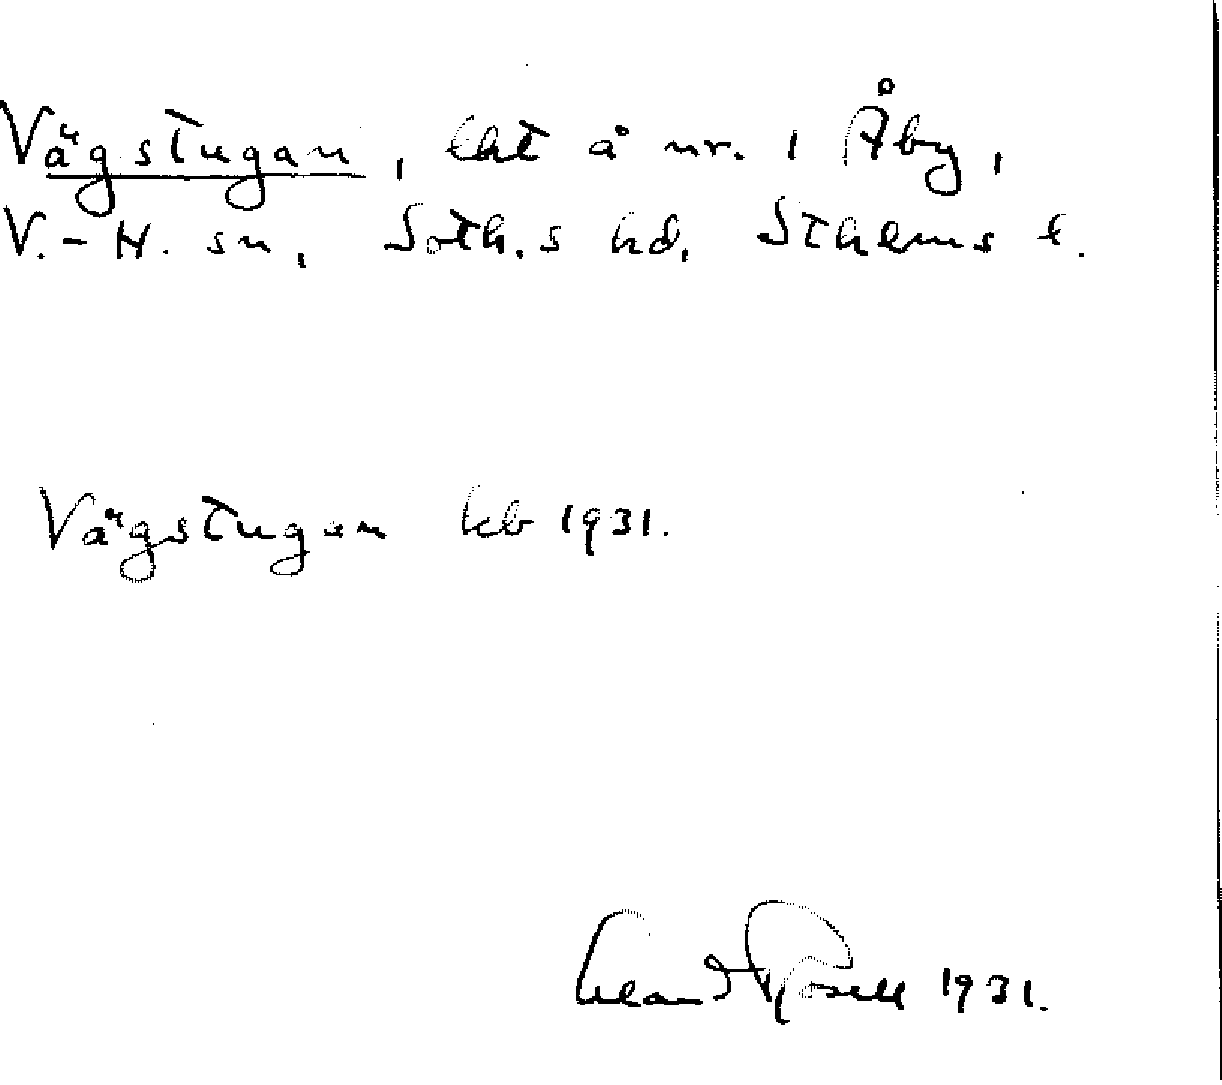 Vägstugan, lht å nr. 1 Åby,
V.-H. sn, Soth.s hd, Sthlms l.
Vägstugan kb 1931.
Rosell 1931.